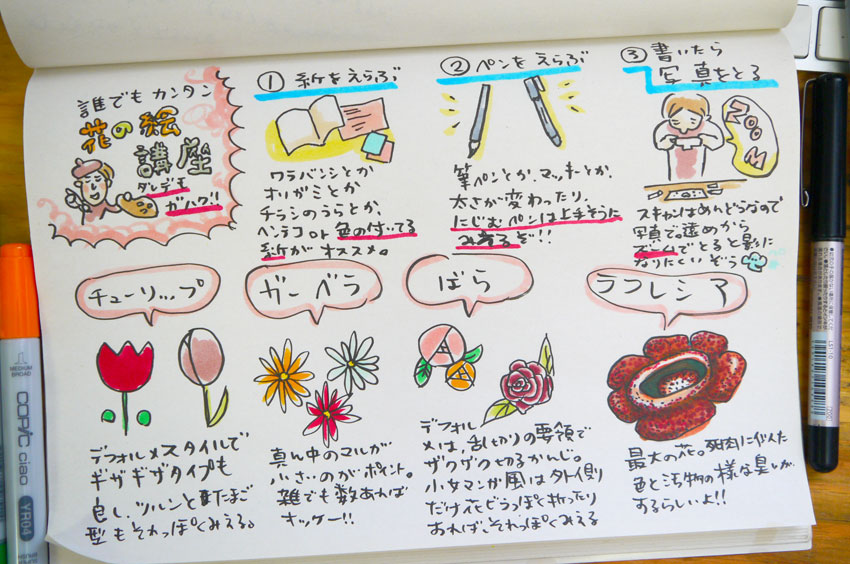 誰でもカンタン
花の絵
講座
ダレデモ
ガハク!!
① 紙をえらぶ
ワラバンシとか
オリガミとか
チラシのうらとか、
ヘンテコor色の付いてる
紙がオススメ。
② ペンをえらぶ
筆ペンとか、マッキーとか、
太さが変わったり、
にじむペンは上手そうに
みえるぞ!!
③ 書いたら
写真をとる
ZOOM
スキャンはめんどうなので
写真で。遠めから
ズームでとると影に
なりにくいぞう
チューリップ
デフォルメスタイルで
ギザギザタイプも
良し、ツルンとしたたまご
型もそれっぽくみえる。
ガーベラ
真ん中のマルが
小さいのがポイント。
雑でも数あれば
オッケー!!
ばら
デフォル
メは、乱切りの要領で
ザクザク切るかんじ。
小女マンガ風は外側
だけ花びらっぽく折ったり
おれば、それっぽくみえる
ラフレシア
最大の花。死肉に似た
色と汚物の様な臭いが
するらしいよ!!
MEDIUM
BROAD
COPIC
ciao
YR04